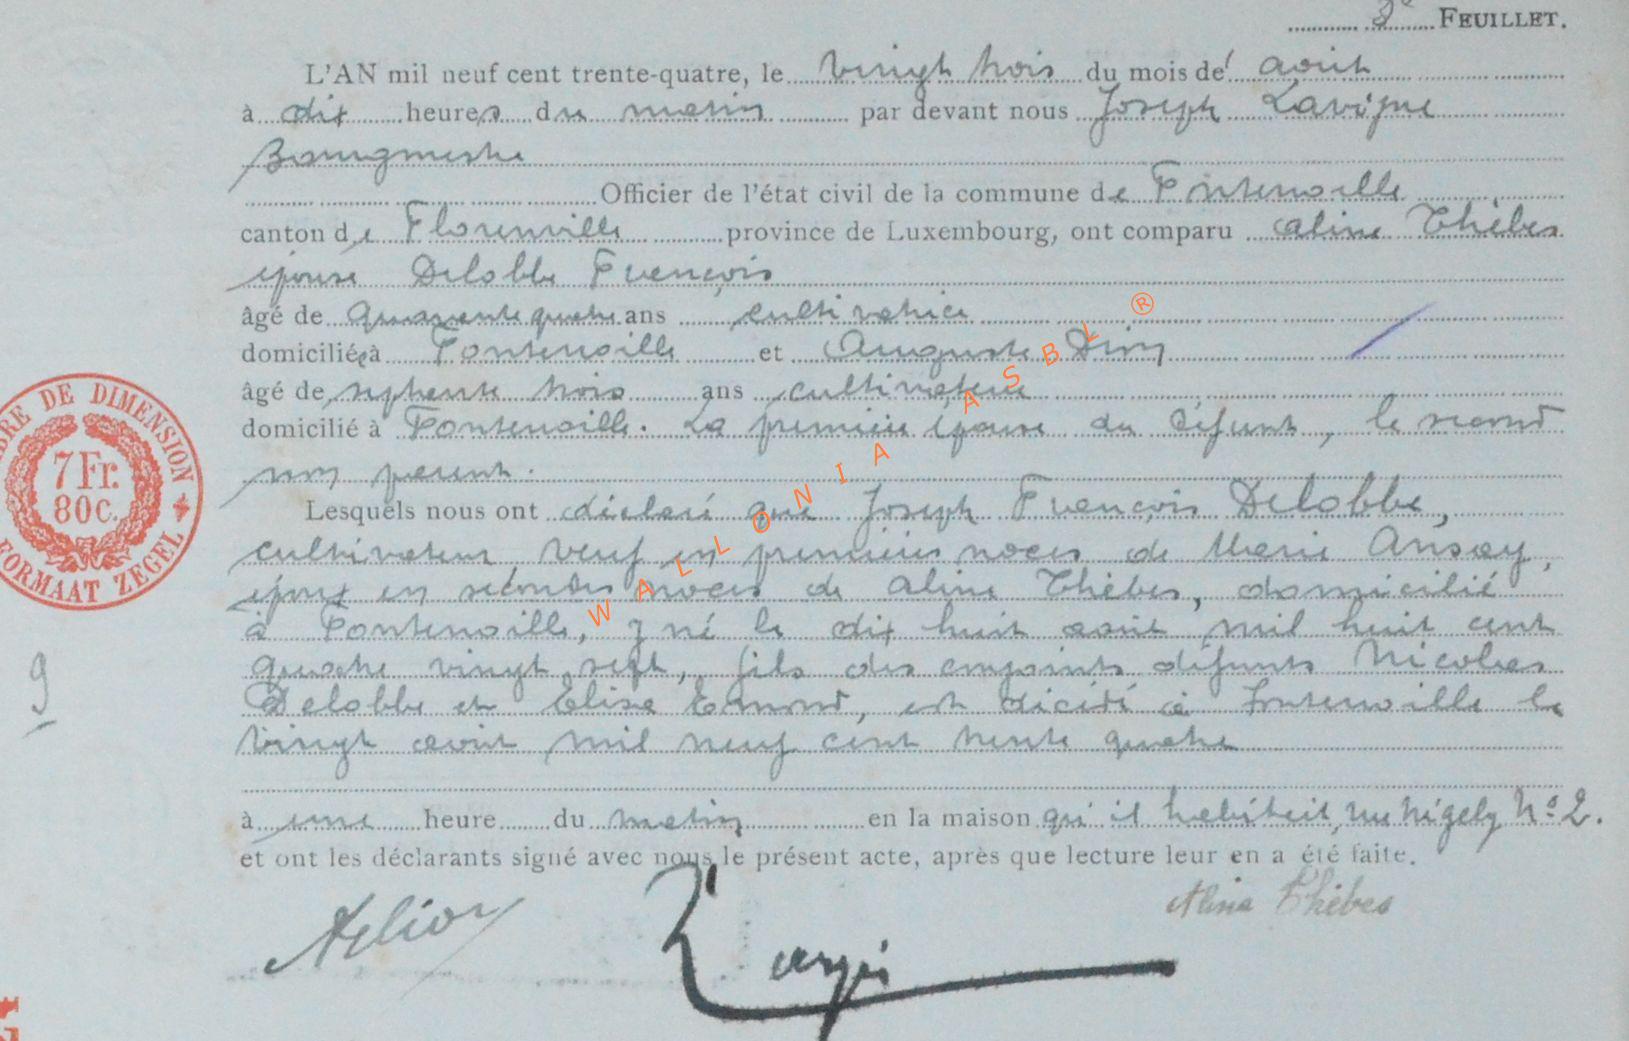 3e FEUILLET.
L'AN mil neuf cent trente-quatre, le vingt trois du mois de août
à dix heures du matin par devant nous Joseph Lavigne
Bourgmestre
Officier de l'état civil de la commune de Fontenoille
canton de Florenville province de Luxembourg, ont comparu Aline Thèbes
épouse Delobbe François
âgé de quarante quatre ans cultivatrice
domiciliée à Fontenoille et Auguste
âgé de septante trois ans cultivateur
domicilié à Fontenoille. La première épouse du défunt, le second
non parent.
Lesquels nous ont déclaré que Joseph François Delobbe,
cultivateur, veuf en premières noces de Marie Ansay,
époux en secondes noces de Aline Thèbes, domicilié
à Fontenoille, y né le dix huit août mil huit cent
quatre vingt sept, fils des conjoints défunts Nicolas
Delobbe et Elise Emond, est décédé à Fontenoille le
vingt août mil neuf cent trente quatre
à une heure du matin en la maison qu'il habitait, rue No 2.
et ont les déclarants signé avec nous le présent acte, après que lecture leur en a été faite.
Aline Thèbes
9
TIMBRE DE DIMENSION
7 Fr.
80 C.
FORMAAT ZEGEL
WALLONIA ASBL ®